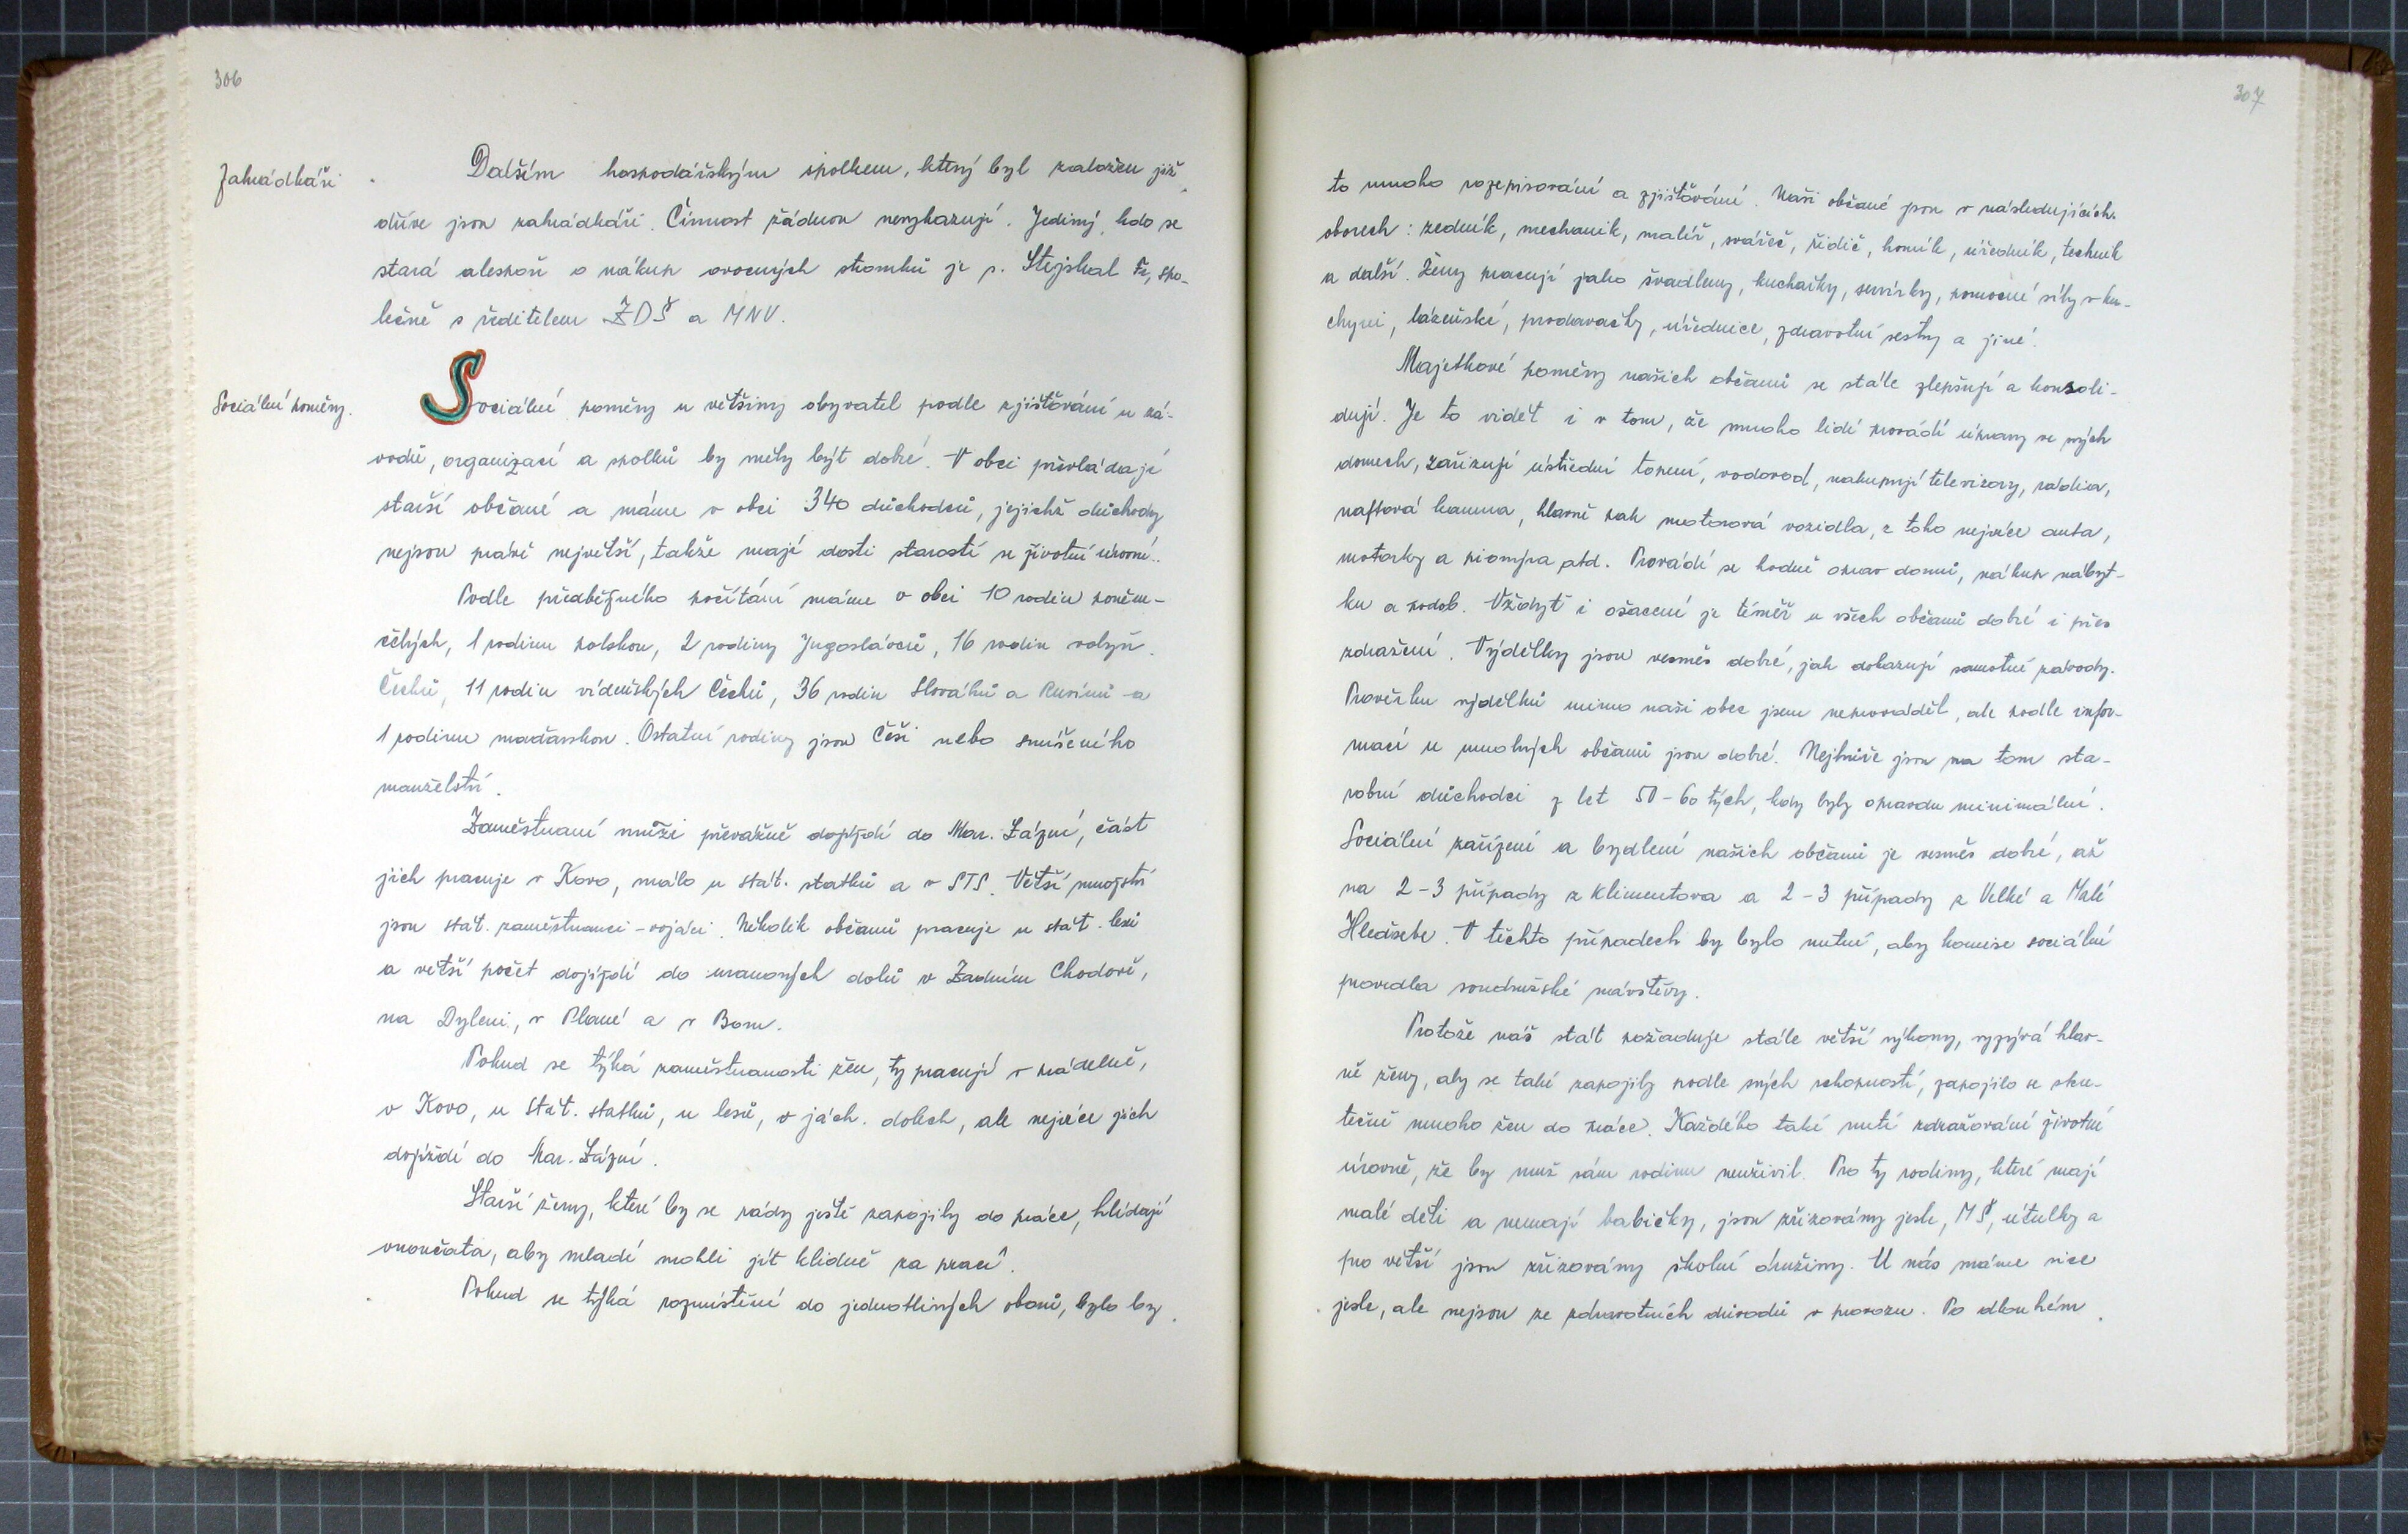 306
Zahrádkáři
Dalším hospodářským spolkem, který byl založen již
dříve jsou zahrádkáři. Činnost žádnou nevykazují. Jediný, kdo se
stará alespoň o nákup ovocných stromků je s. Stejskal Fr, spo-
lečně s ředitelem ZDŠ a MNV.
Sociální poměry.
Sociální poměry u většiny obyvatel podle zjišťování u zá-
vodů, organizací a spolků by měly být dobré. V obci převládají
starší občané a máme v obci 340 důchodců, jejichž důchody
nejsou právě největší, takže mají dosti starostí se životní úrovní.
Podle předběžného počítání máme v obci 10 rodin poněm-
čelých, 1 rodinu polskou, 2 rodiny Jugoslávců, 16 rodin volyň.
Čechů, 11 rodin vídeňských Čechů, 36 rodin Slováků a Rusínů a
1 rodinu maďarskou. Ostatní rodiny jsou Češi nebo smíšeného
manželství.
Zaměstnaní muži převážně dojíždí do Mar. Lázní, část
jich pracuje v Kovo, málo u stát. statků a v STS. Větší množství
jsou stát. zaměstnanci - vojáci. Několik občanů pracuje u stát. lesů
a větší počet dojíždí do uranových dolů v Zadním Chodově,
na Dyleni, v Plané a v Boru.
Pokud se týká zaměstnanosti žen, ty pracují v prádelně,
v Kovo, u stát. statků, u lesů, v jách. dolech, ale nejvíce jich
dojíždí do Mar. Lázní.
Starší ženy, které by se rády ještě zapojily do práce, hlídají
vnoučata, aby mladé mohli jít klidně za prací.
Pokud se týká rozmístění do jednotlivých oborů, bylo by
307
to mnoho rozepisování a zjišťování. Naši občané jsou v následujících
oborech: zedník, mechanik, malíř, svářeč, řidič, horník, úředník, technik
a další. Ženy pracují jako švadleny, kuchařky, servírky, pomocné síly v ku-
chyni, lázeňské, prodavačky, úřednice, zdravotní sestry a jiné.
Majetkové poměry našich občanů se stále zlepšují a konsoli-
dují. Je to vidět i v tom, že mnoho lidí provádí úpravy ve svých
domech, zařizují ústřední topení, vodovod, nakupují televizory, rádia,
naftová kamna, hlavně pak motorová vozidla, z toho nejvíce auta,
motorky a pionýra atd. Provádí se hodně oprav domů, nákup nábyt-
ku a podob. Vždyť i ošacení je téměř u všech občanů dobré i přes
zdražení. Výdělky jsou vesměs dobré, jak dokazují samotné závody.
Prověrku výdělků mimo naši obec jsem neprováděl, ale podle infor-
mací u mnohých občanů jsou dobré. Nejhůře jsou na tom sta-
robní důchodci z let 50-60 tých, kdy byly opravdu minimální.
Sociální zařízení a bydlení našich občanů je vesměs dobré, až
na 2-3 případy z Klimentova a 2-3 případy z Velké a Malé
Hleďsebe. V těchto případech by bylo nutné, aby komise sociální
provedla soudružské návštěvy.
Protože náš stát požaduje stále větší výkony, vyzývá hlav-
ně ženy, aby se také zapojily podle svých schopností, zapojilo se sku-
tečně mnoho žen do práce. Každého také nutí zdražování životní
úrovně, že by muž sám rodinu neuživil. Pro ty rodiny, které mají
malé děti a nemají babičky, jsou zřizovány jesle, MŠ, útulky a
pro větší jsou zřizovány školní družiny. U nás máme sice
jesle, ale nejsou ze zdravotních důvodů v provozu. Po dlouhém